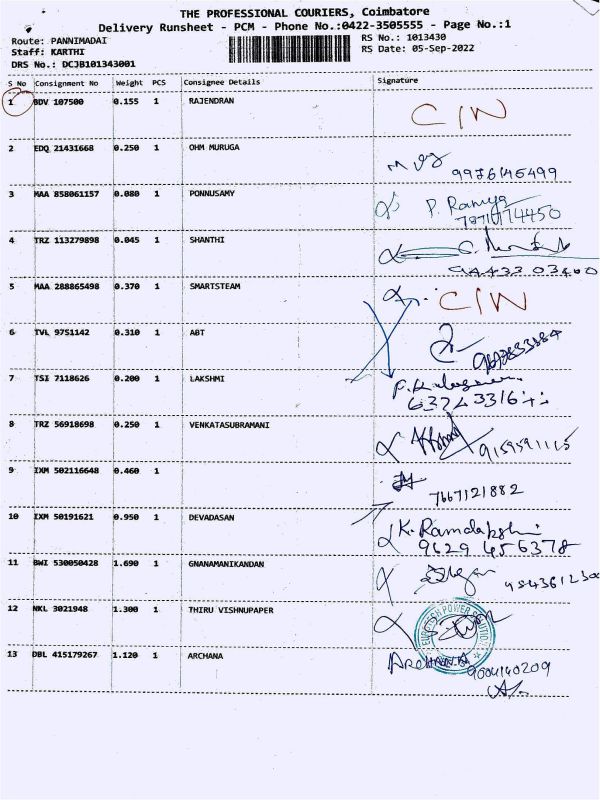 THE PROFESSIONAL COURIERS, Coimbatore
Delivery Runsheet - PCM - Phone No.:0422-3505555 - Page No.:1
Route: PANNIMADAI
Staff: KARTHI
DRS No.: DCJB101343001
RS No.: 1013430
RS Date: 05-Sep-2022
S No Consignment No Weight PCS Consignee Details Signature
1 BDV 107500 0.155 1 RAJENDRAN C/N
2 EDQ 21431668 0.250 1 OHM MURUGA
3 MAA 858061157 0.080 1 PONNUSAMY P. Ramya
4 TRZ 113279898 0.045 1 SHANTHI
5 MAA 288865498 0.370 1 SMARTSTEAM C/N
6 TVL 9751142 0.310 1 ABT
7 TSI 7118626 0.200 1 LAKSHMI
8 TRZ 56918698 0.250 1 VENKATASUBRAMANI
9 IXM 502116648 0.460 1
7667121882
10 IXM 50191621 0.950 1 DEVADASAN
9629 456378
11 BWI 530050428 1.690 1 GNANAMANIKANDAN
12 NKL 3021948 1.300 1 THIRU VISHNUPAPER
13 DBL 415179267 1.120 1 ARCHANA ARCHANA
9004140209